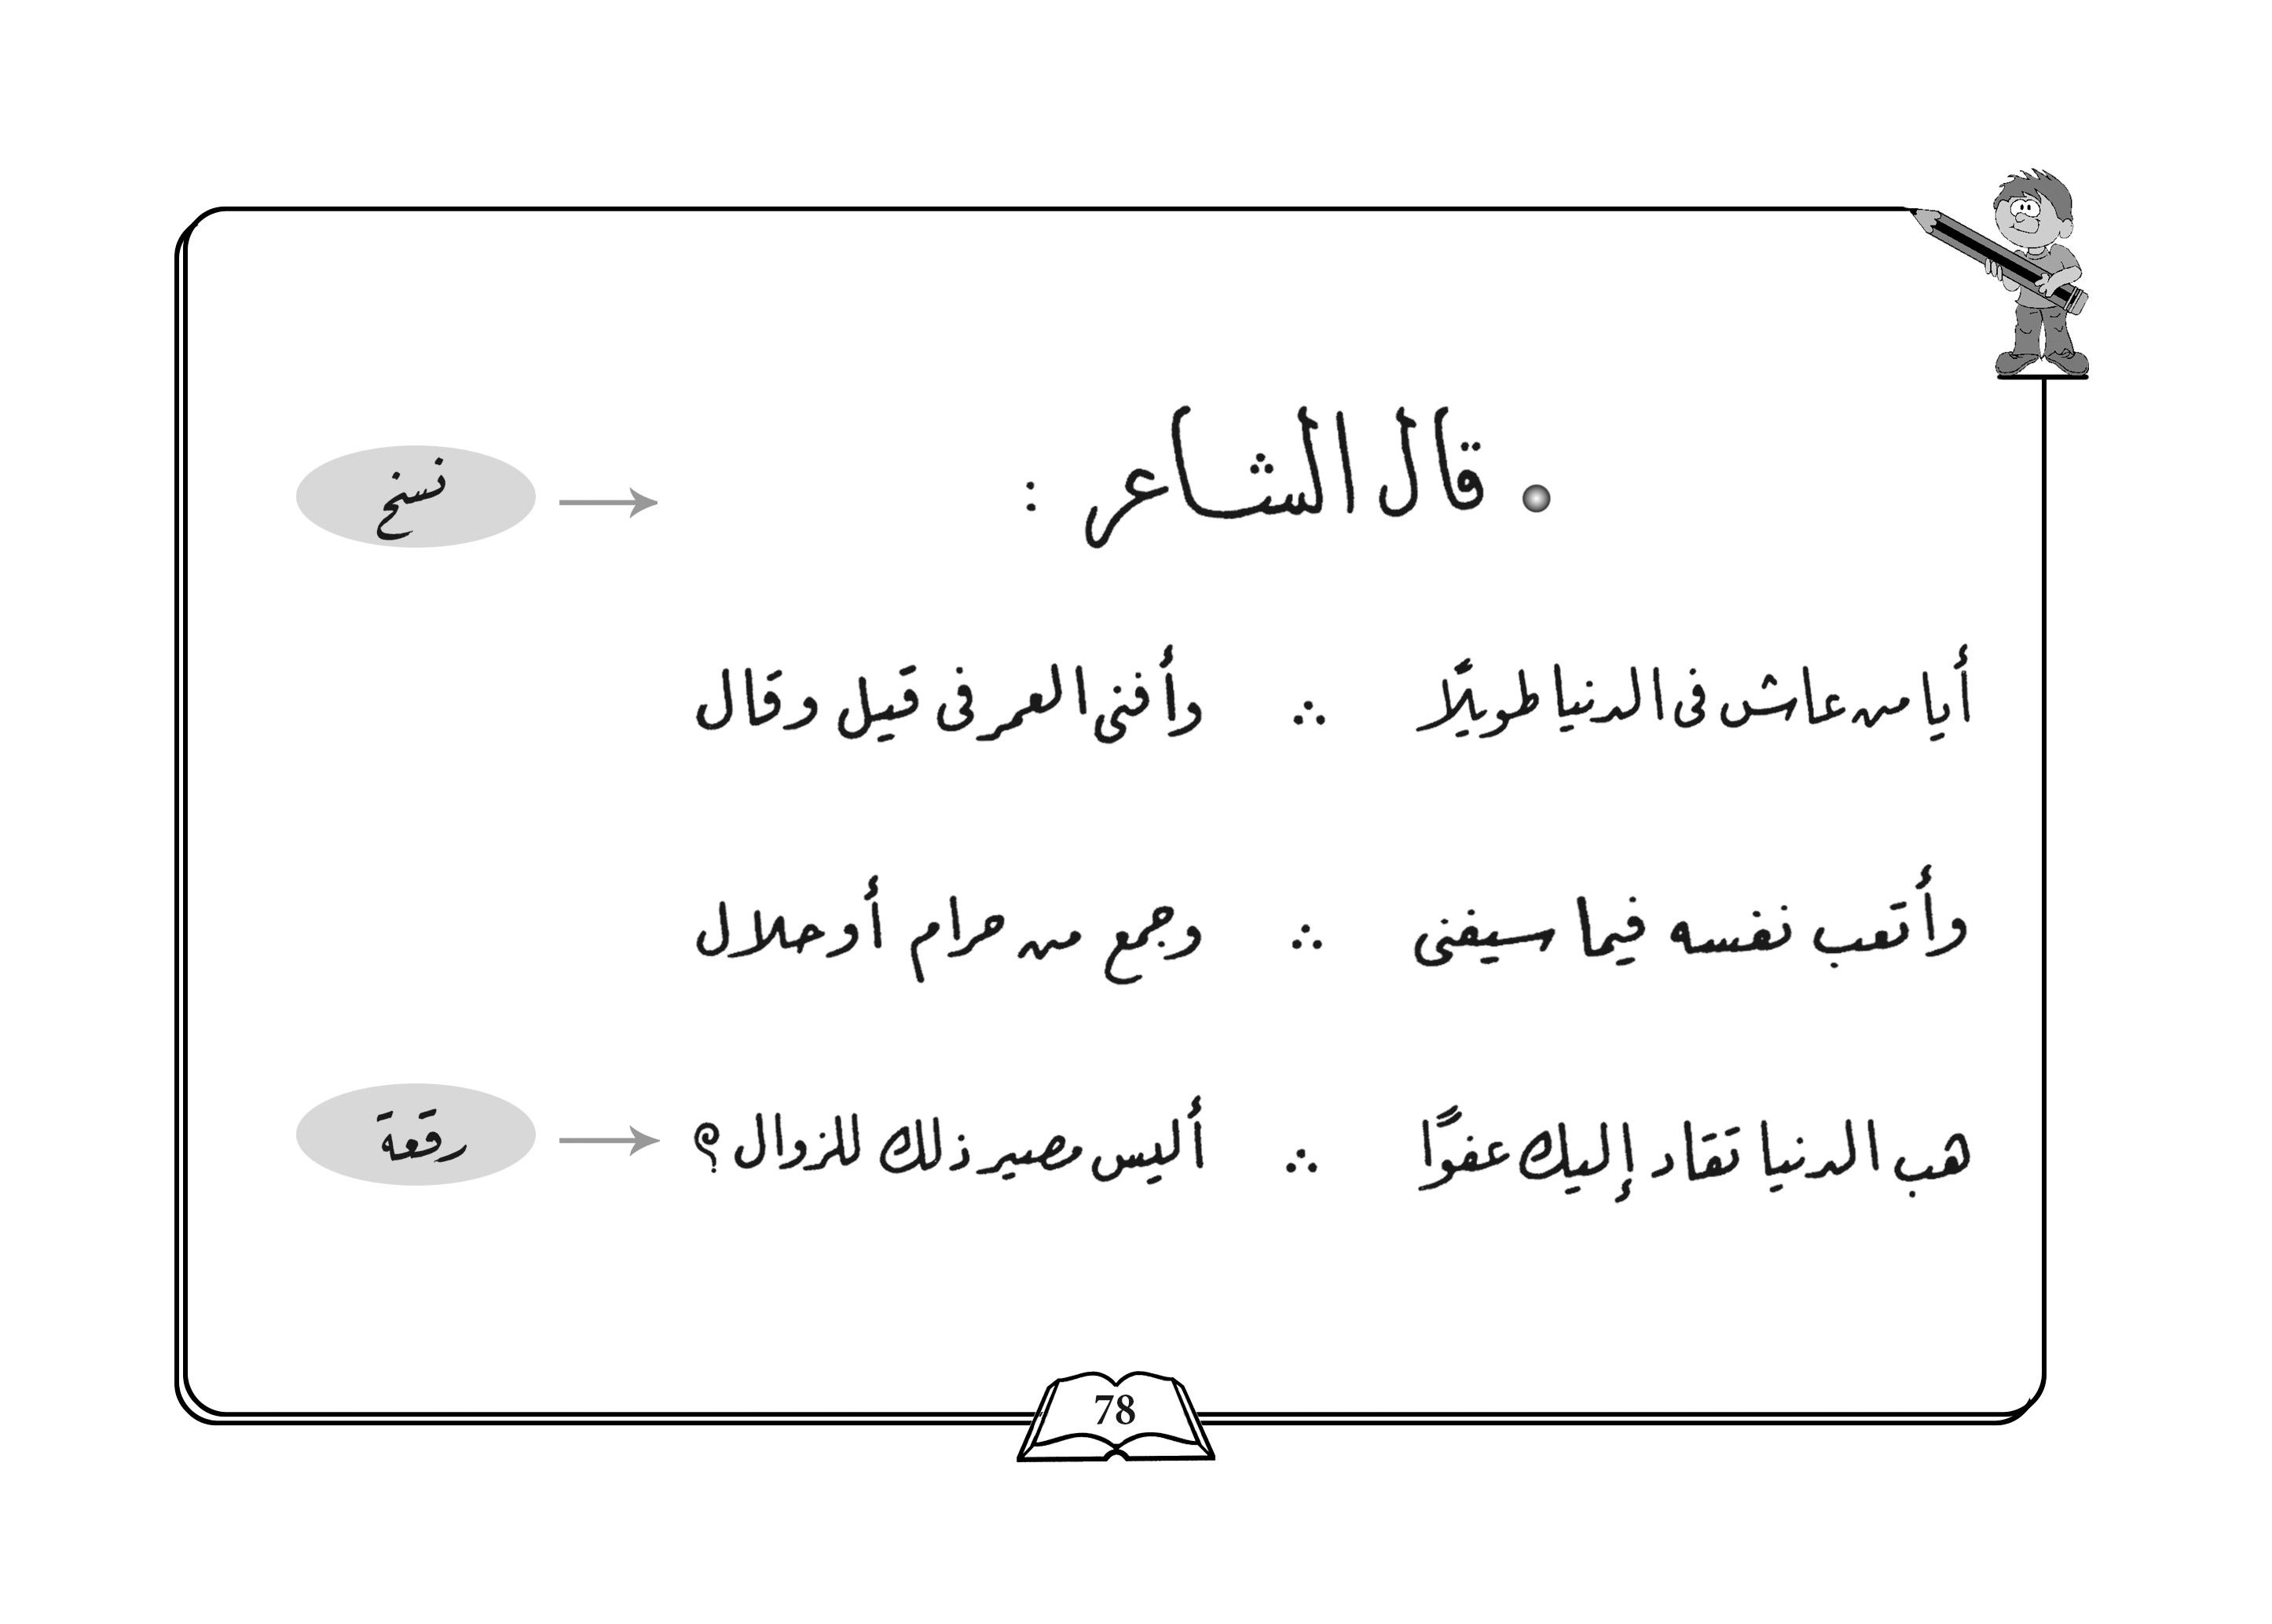 • قال الشاعر : نسخ
أيا من عاش فى الدنيا طويلًا ∴ وأفنى العمر فى قيل وقال
وأتعب نفسه فيما سيفنى ∴ وجمع من حرام أو حلال
هب الدنيا تقاد إليك عفوًا ∴ أليس مصير ذلك للزوال ؟ رقعة
78